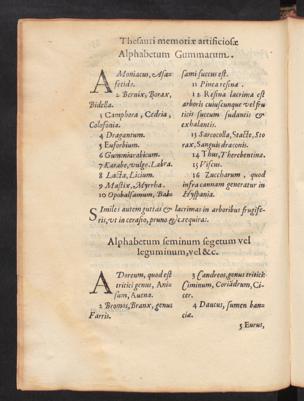 Thesauri memoriæ artificiosæ
Alphabetum Gummarum.
AMoniacus, Asæ-
fetida.
2 Bernix, Borax,
Bidella.
3 Camphora, Cedria,
Colofonia.
4 Dragantum.
5 Euforbium.
6 Gummiarabicum.
7 Karabe, vulgo. Labra.
8 Lacta, Licium.
9 Mastix, Myrrha.
10 Opobalsamum, Babo
sami succus est.
11 Pinea resina.
12 Resina lacrima est
arboris cuiuscunque vel fru
ticis succum sudantis &
exhalantis.
13 Sarcocolla, Stacte, Sto
rax, Sanguis draconis.
14 Thus, Therebentina.
15 Viscus.
16 Zuccharum, quod
infra cannam generatur in
Hyspania.
SImiles autem guttas & lacrimas in arboribus frugife-
ris, ut in ceraso, pruno &c. requiras.
Alphabetum seminum segetum vel
leguminum, vel &c.
ADoreum, quod est
tritici genus, Ani-
sum, Auena.
2 Bromos, Branx, genus
Farris.
3 Candreos, genus tritici.
Ciminum, Coriādrum, Ci-
cer.
4 Daucus, semen
5 Eurus,